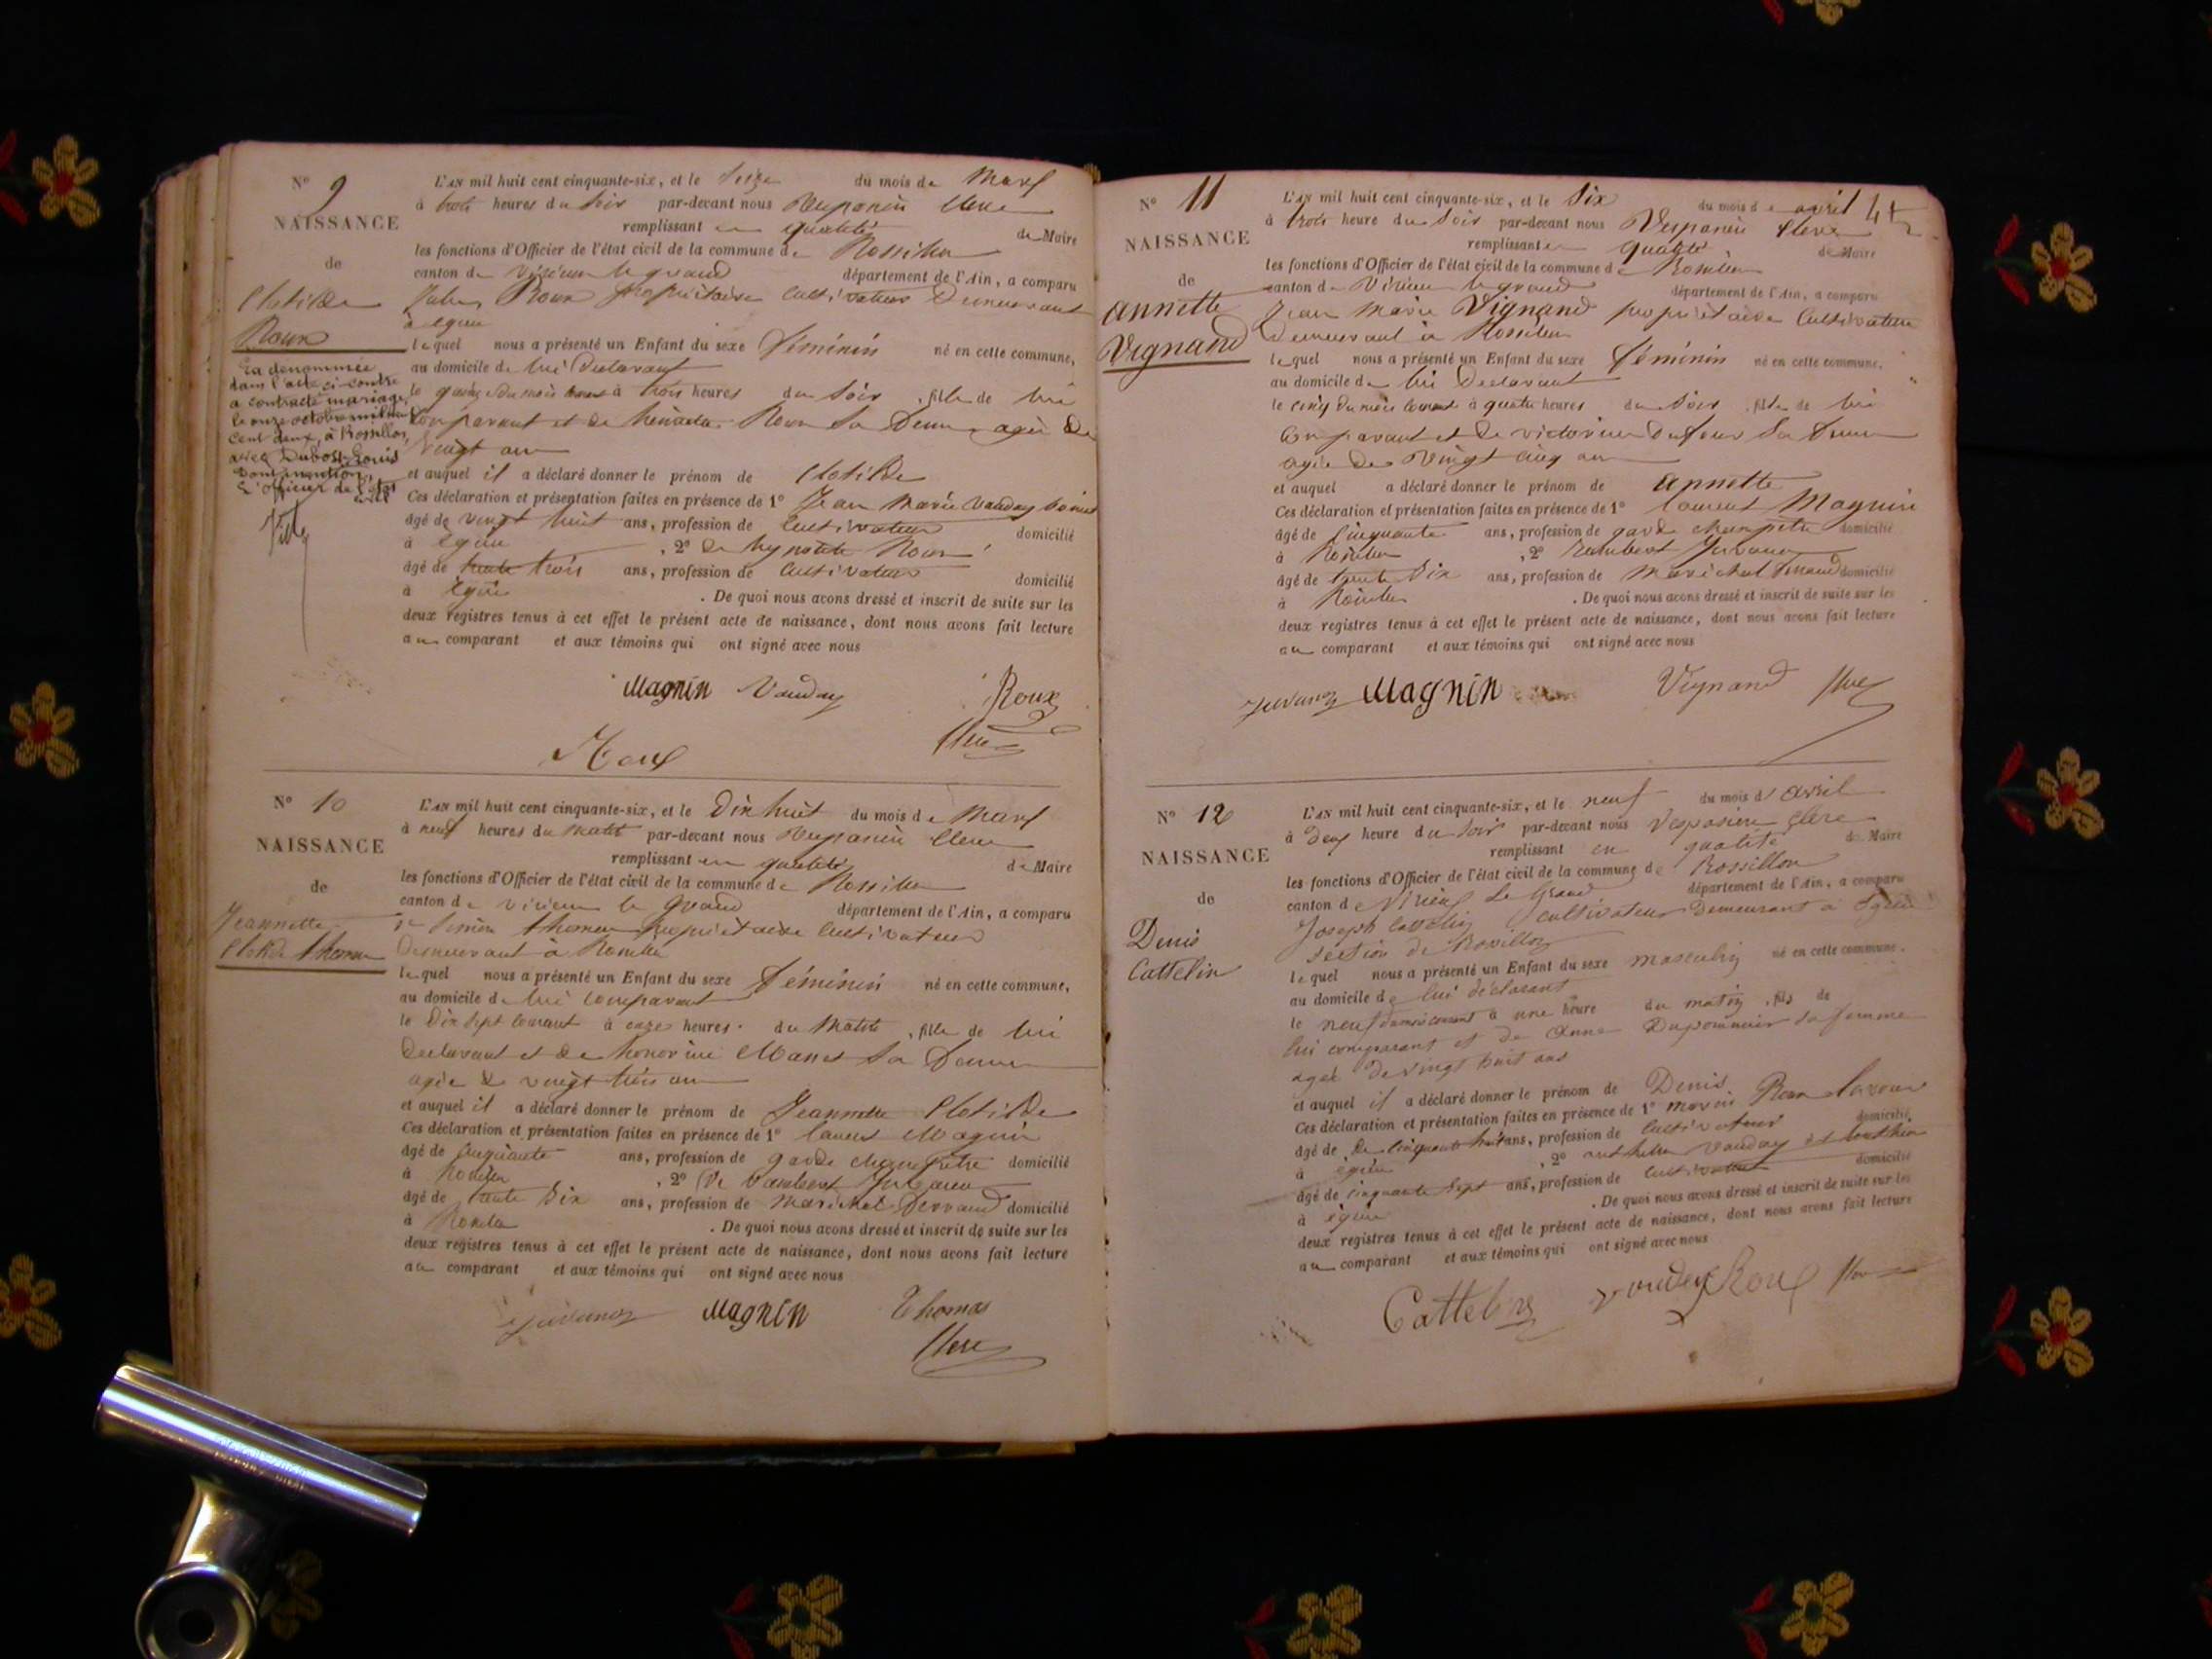 N° 9
NAISSANCE
de
Clotilde
Roux
La dénommée
dans l'acte ci-contre
a contracté mariage,
le onze octobre mil neuf
cent deux, à Rossillon,
avec Dubost Louis
Dont mention,
L'officier de l'état
civil
L'AN mil huit cent cinquante-six, et le Seize du mois de Mars
à trois heures du soir par-devant nous Vespasien Clerc
remplissant en qualité de Maire
les fonctions d'Officier de l'état civil de la commune de Rossillon
canton de Virieu le grand département de l'Ain, a comparu
Roux propriétaire cultivateur Demeurant
à Egieu
lequel nous a présenté un Enfant du sexe féminin né en cette commune,
au domicile de lui Déclarant
le du mois à trois heures du soir, fille de lui
Comparant et de Roux sa femme agée de
vingt ans
et auquel il a déclaré donner le prénom de Clotilde
Ces déclaration et présentation faites en présence de 1° Jean Marie Vauday
âgé de vingt huit ans, profession de Cultivateur domicilié
à Egieu , 2° de hypolite Roux
âgé de trente trois ans, profession de Cultivateur domicilié
à Egieu . De quoi nous avons dressé et inscrit de suite sur les
deux registres tenus à cet effet le présent acte de naissance, dont nous avons fait lecture
au comparant et aux témoins qui ont signé avec nous
Magnin Vauday Roux
Roux Clerc
N° 10
NAISSANCE
de
Jeannette
Clotilde Thomas
L'AN mil huit cent cinquante-six, et le Dix huit du mois de Mars
à neuf heures du matin par-devant nous Vespasien Clerc
remplissant en qualité de Maire
les fonctions d'Officier de l'état civil de la commune de Rossillon
canton de Virieu le grand département de l'Ain, a comparu
Simon thomas propriétaire Cultivateur
Demeurant à Rossillon
lequel nous a présenté un Enfant du sexe féminin né en cette commune,
au domicile de lui comparant
le Dix sept courant à onze heures du Matin, fille de lui
Déclarant et de honorine Manet sa femme
agée de vingt trois ans
et auquel il a déclaré donner le prénom de Jeannette Clotilde
Ces déclaration et présentation faites en présence de 1° Laurent Magnin
âgé de cinquante ans, profession de garde champêtre domicilié
à Rossillon , 2° de Rambert Juvanon
âgé de trente six ans, profession de Maréchal ferrand domicilié
à Rossillon . De quoi nous avons dressé et inscrit de suite sur les
deux registres tenus à cet effet le présent acte de naissance, dont nous avons fait lecture
au comparant et aux témoins qui ont signé avec nous
Magnin Thomas
Clerc
N° 11
NAISSANCE
de
annette
Vignand
L'AN mil huit cent cinquante-six, et le Six du mois de avril
à trois heure du soir par-devant nous Vespasien Clerc
remplissant en qualité de Maire
les fonctions d'Officier de l'état civil de la commune de Rossillon
canton de Virieu le grand département de l'Ain, a comparu
Jean Marie Vignand propriétaire Cultivateur
Demeurant à Rossillon
lequel nous a présenté un Enfant du sexe féminin né en cette commune,
au domicile de lui Déclarant
le cinq du mois courant à quatre heures du soir, fille de lui
Comparant et de victorine Dufour sa femme
agée de vingt cinq ans
et auquel a déclaré donner le prénom de annette
Ces déclaration et présentation faites en présence de 1° Laurent Magnin
âgé de cinquante ans, profession de garde champêtre domicilié
à Rossillon , 2° Rambert Juvanon
âgé de trente six ans, profession de maréchal ferrand domicilié
à Rossillon . De quoi nous avons dressé et inscrit de suite sur les
deux registres tenus à cet effet le présent acte de naissance, dont nous avons fait lecture
au comparant et aux témoins qui ont signé avec nous
Magnin Vignand Clerc
N° 12
NAISSANCE
de
Denis
Cattelin
L'AN mil huit cent cinquante-six, et le neuf du mois d'avril
à deux heure du soir par-devant nous Vespasien Clerc
remplissant en qualité de Maire
les fonctions d'Officier de l'état civil de la commune de Rossillon
canton de Virieu Le Grand département de l'Ain, a comparu
Joseph Cattelin cultivateur demeurant à Egieu
section de Rossillon
lequel nous a présenté un Enfant du sexe masculin né en cette commune,
au domicile de lui déclarant
le neuf du mois courant à une heure du matin, fils de
lui comparant et de Anne sa femme
agée de vingt huit ans
et auquel il a déclaré donner le prénom de Denis
Ces déclaration et présentation faites en présence de 1° Roux
âgé de cinquante huit ans, profession de Cultivateur domicilié
à Egieu , 2° anthelme Vauday
âgé de cinquante sept ans, profession de cultivateur domicilié
à Egieu . De quoi nous avons dressé et inscrit de suite sur les
deux registres tenus à cet effet le présent acte de naissance, dont nous avons fait lecture
au comparant et aux témoins qui ont signé avec nous
Cattelin Vauday Roux Clerc